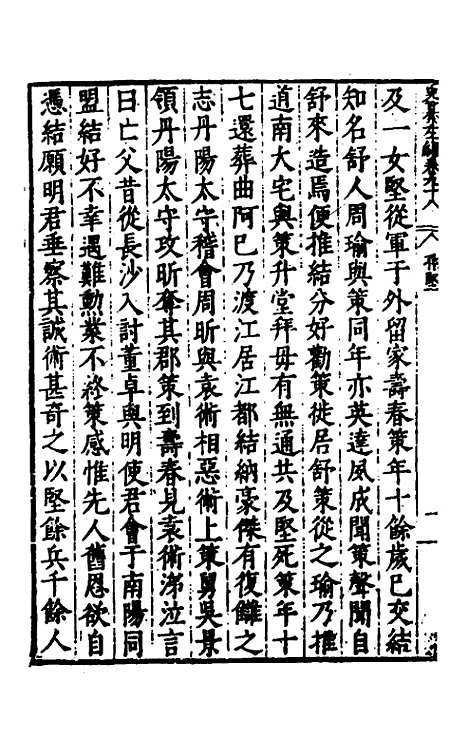 及一女堅從軍于外留家壽春策年十餘歲巳交結
知名舒人周瑜與策同年亦英達夙成聞策聲聞自
舒來造焉便推結分好勸策徙居舒策從之瑜乃推
道南大宅與策升堂拜母有無通共及堅死策年十
七還葬曲阿巳乃渡江居江都結納豪傑有復讎之
志丹陽太守稽會周昕與袁術相惡術上策舅吳景
領丹陽太守攻昕奪其郡策到壽春見袁術涕泣言
曰亡父昔從長沙入討董卓與明使君會于南陽同
盟結好不幸遇難勲業不終策感惟先人舊恩欲自
憑結願明君垂察其誠術甚奇之以堅餘兵千餘人